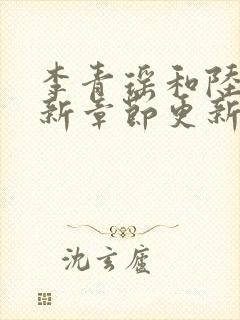 李青瑶和陸
新章節更新
沈玄廬